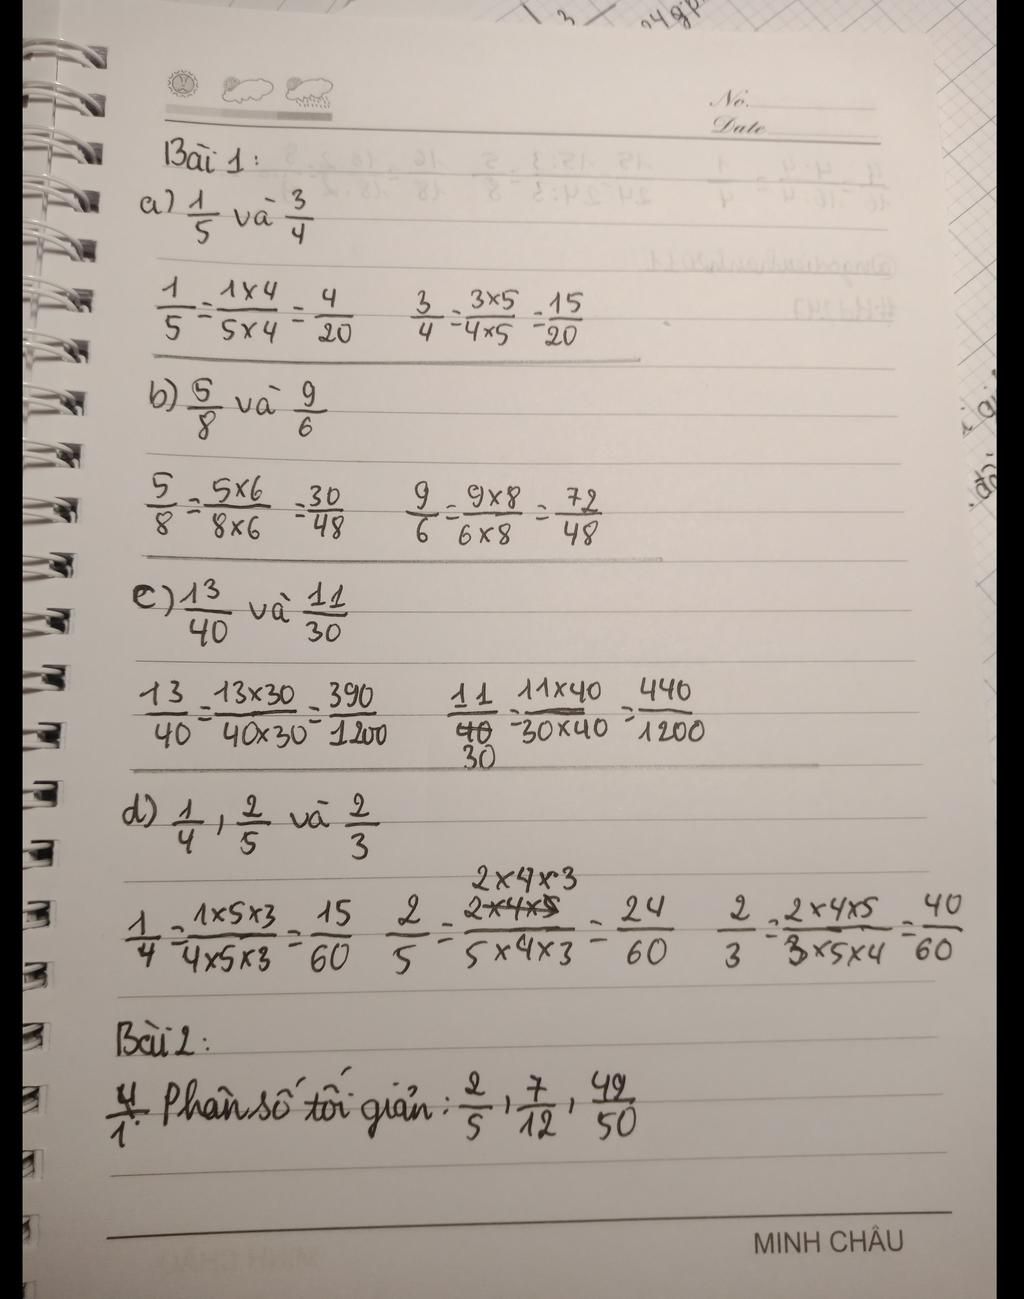 No.
Date
Bài 1:
a) 1/5 và 3/4
1/5 = 1×4/5×4 = 4/20 3/4 = 3×5/4×5 = 15/20
b) 5/8 và 9/6
5/8 = 5×6/8×6 = 30/48 9/6 = 9×8/6×8 = 72/48
c) 13/40 và 11/30
13/40 = 13×30/40×30 = 390/1200 11/30 = 11×40/30×40 = 440/1200
d) 1/4, 2/5 và 2/3
1/4 = 1×5×3/4×5×3 = 15/60 2/5 = 2×4×3/5×4×3 = 24/60 2/3 = 2×4×5/3×5×4 = 40/60
Bài 2:
Phân số tối giản: 2/5, 7/12, 49/50
MINH CHÂU